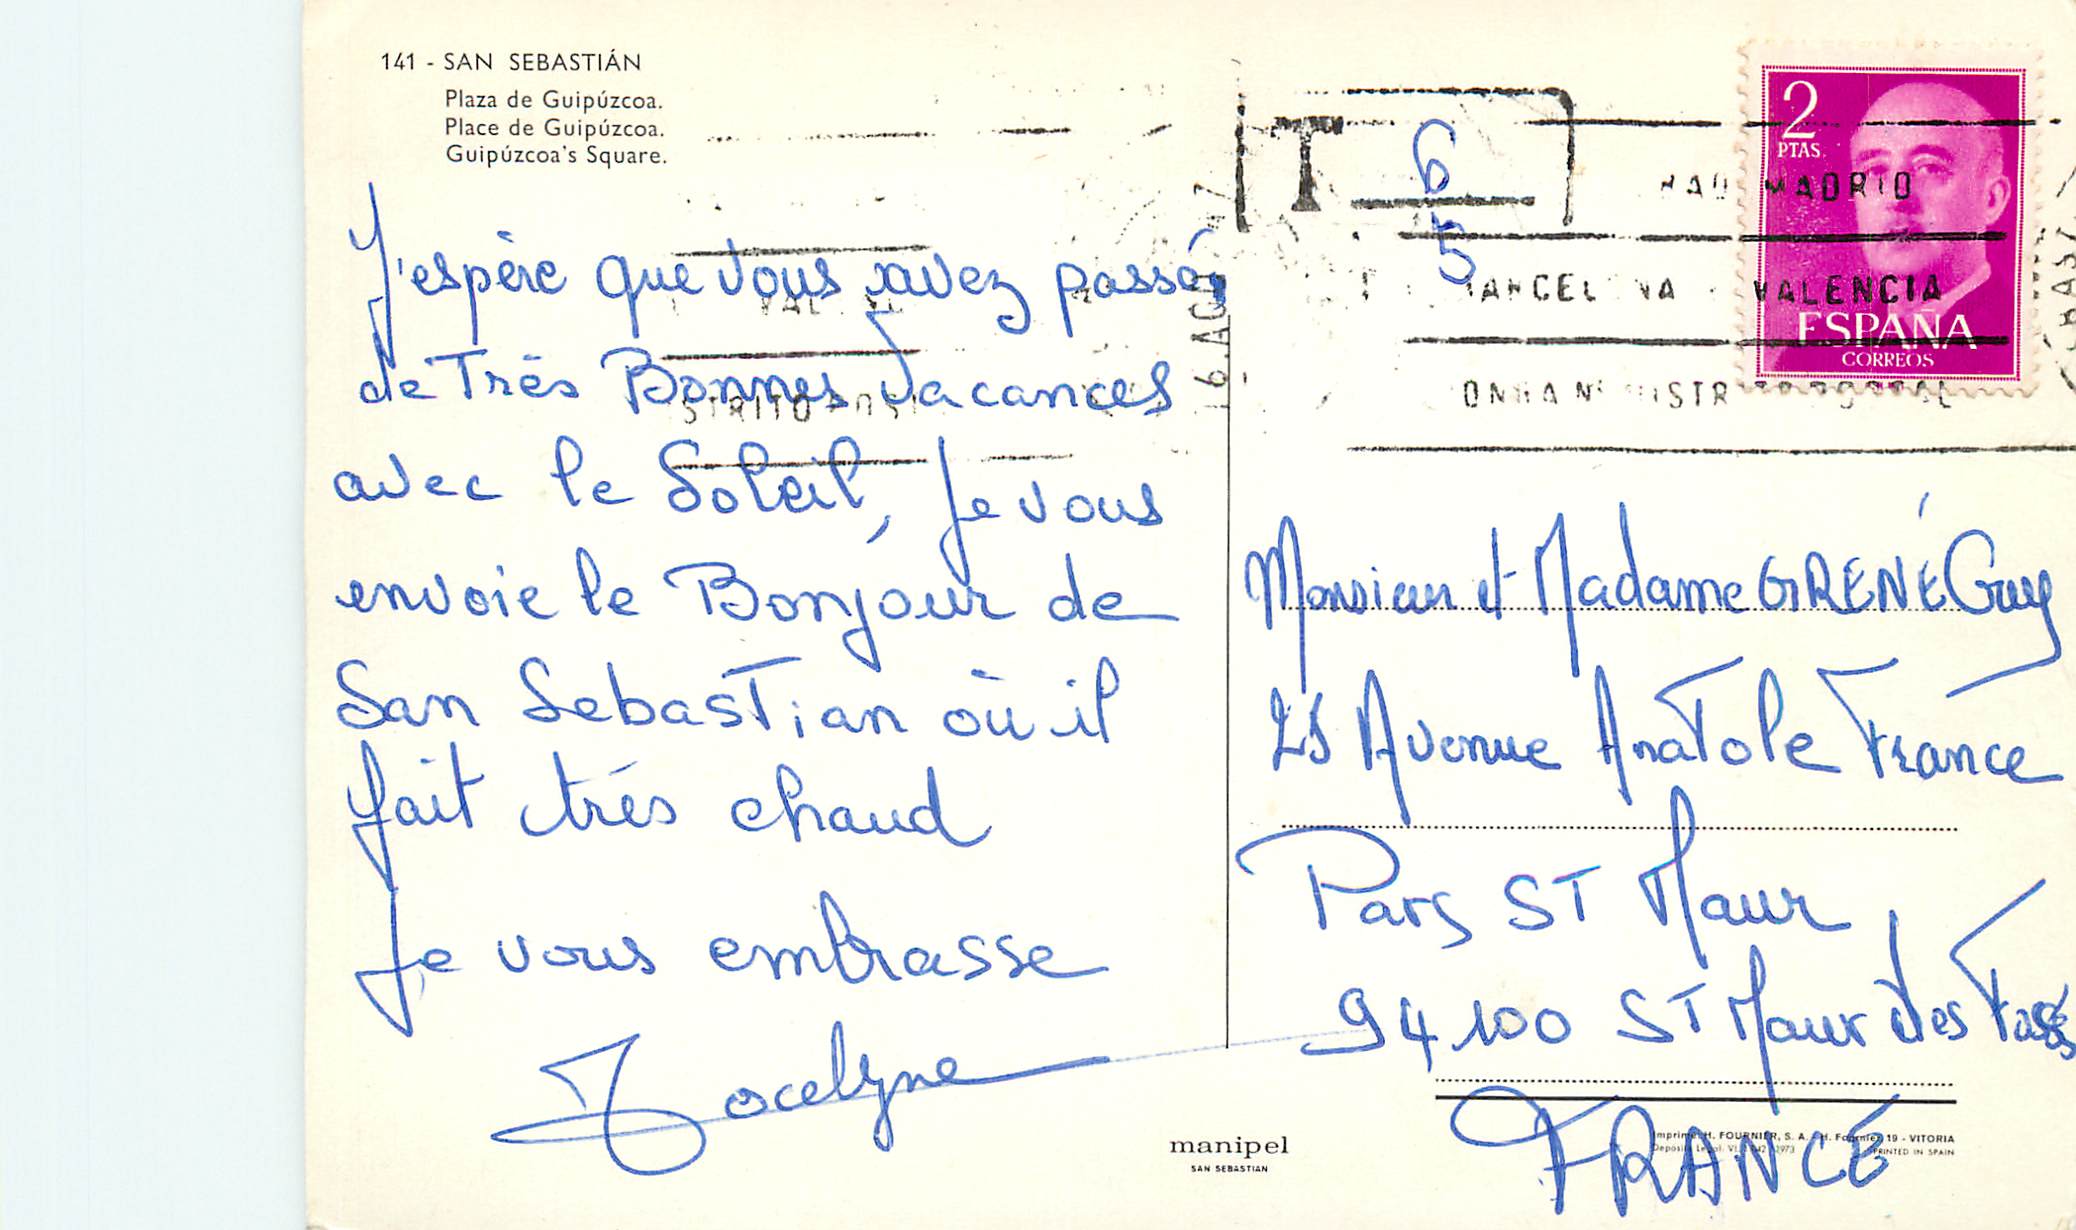 141 - SAN SEBASTIÁN
Plaza de Guipúzcoa.
Place de Guipúzcoa.
Guipúzcoa's Square.
J'espère que vous avez passé
de Très Bonnes Vacances
avec le Soleil, Je vous
envoie le Bonjour de
San Sebastian où il
fait trés chaud
Je vous embrasse
Jocelyne
T 6
5
2
PTAS.
ESPAÑA
CORREOS
MADRID
VALENCIA
Monsieur et Madame GRENÉ Guy
Avenue Anatole France
Parc ST Maur
94100 ST Maur des Fossés
FRANCE
manipel
SAN SEBASTIAN
Imprime H. FOURNIER, S. A. - H. Fournier, 19 - VITORIA
PRINTED IN SPAIN